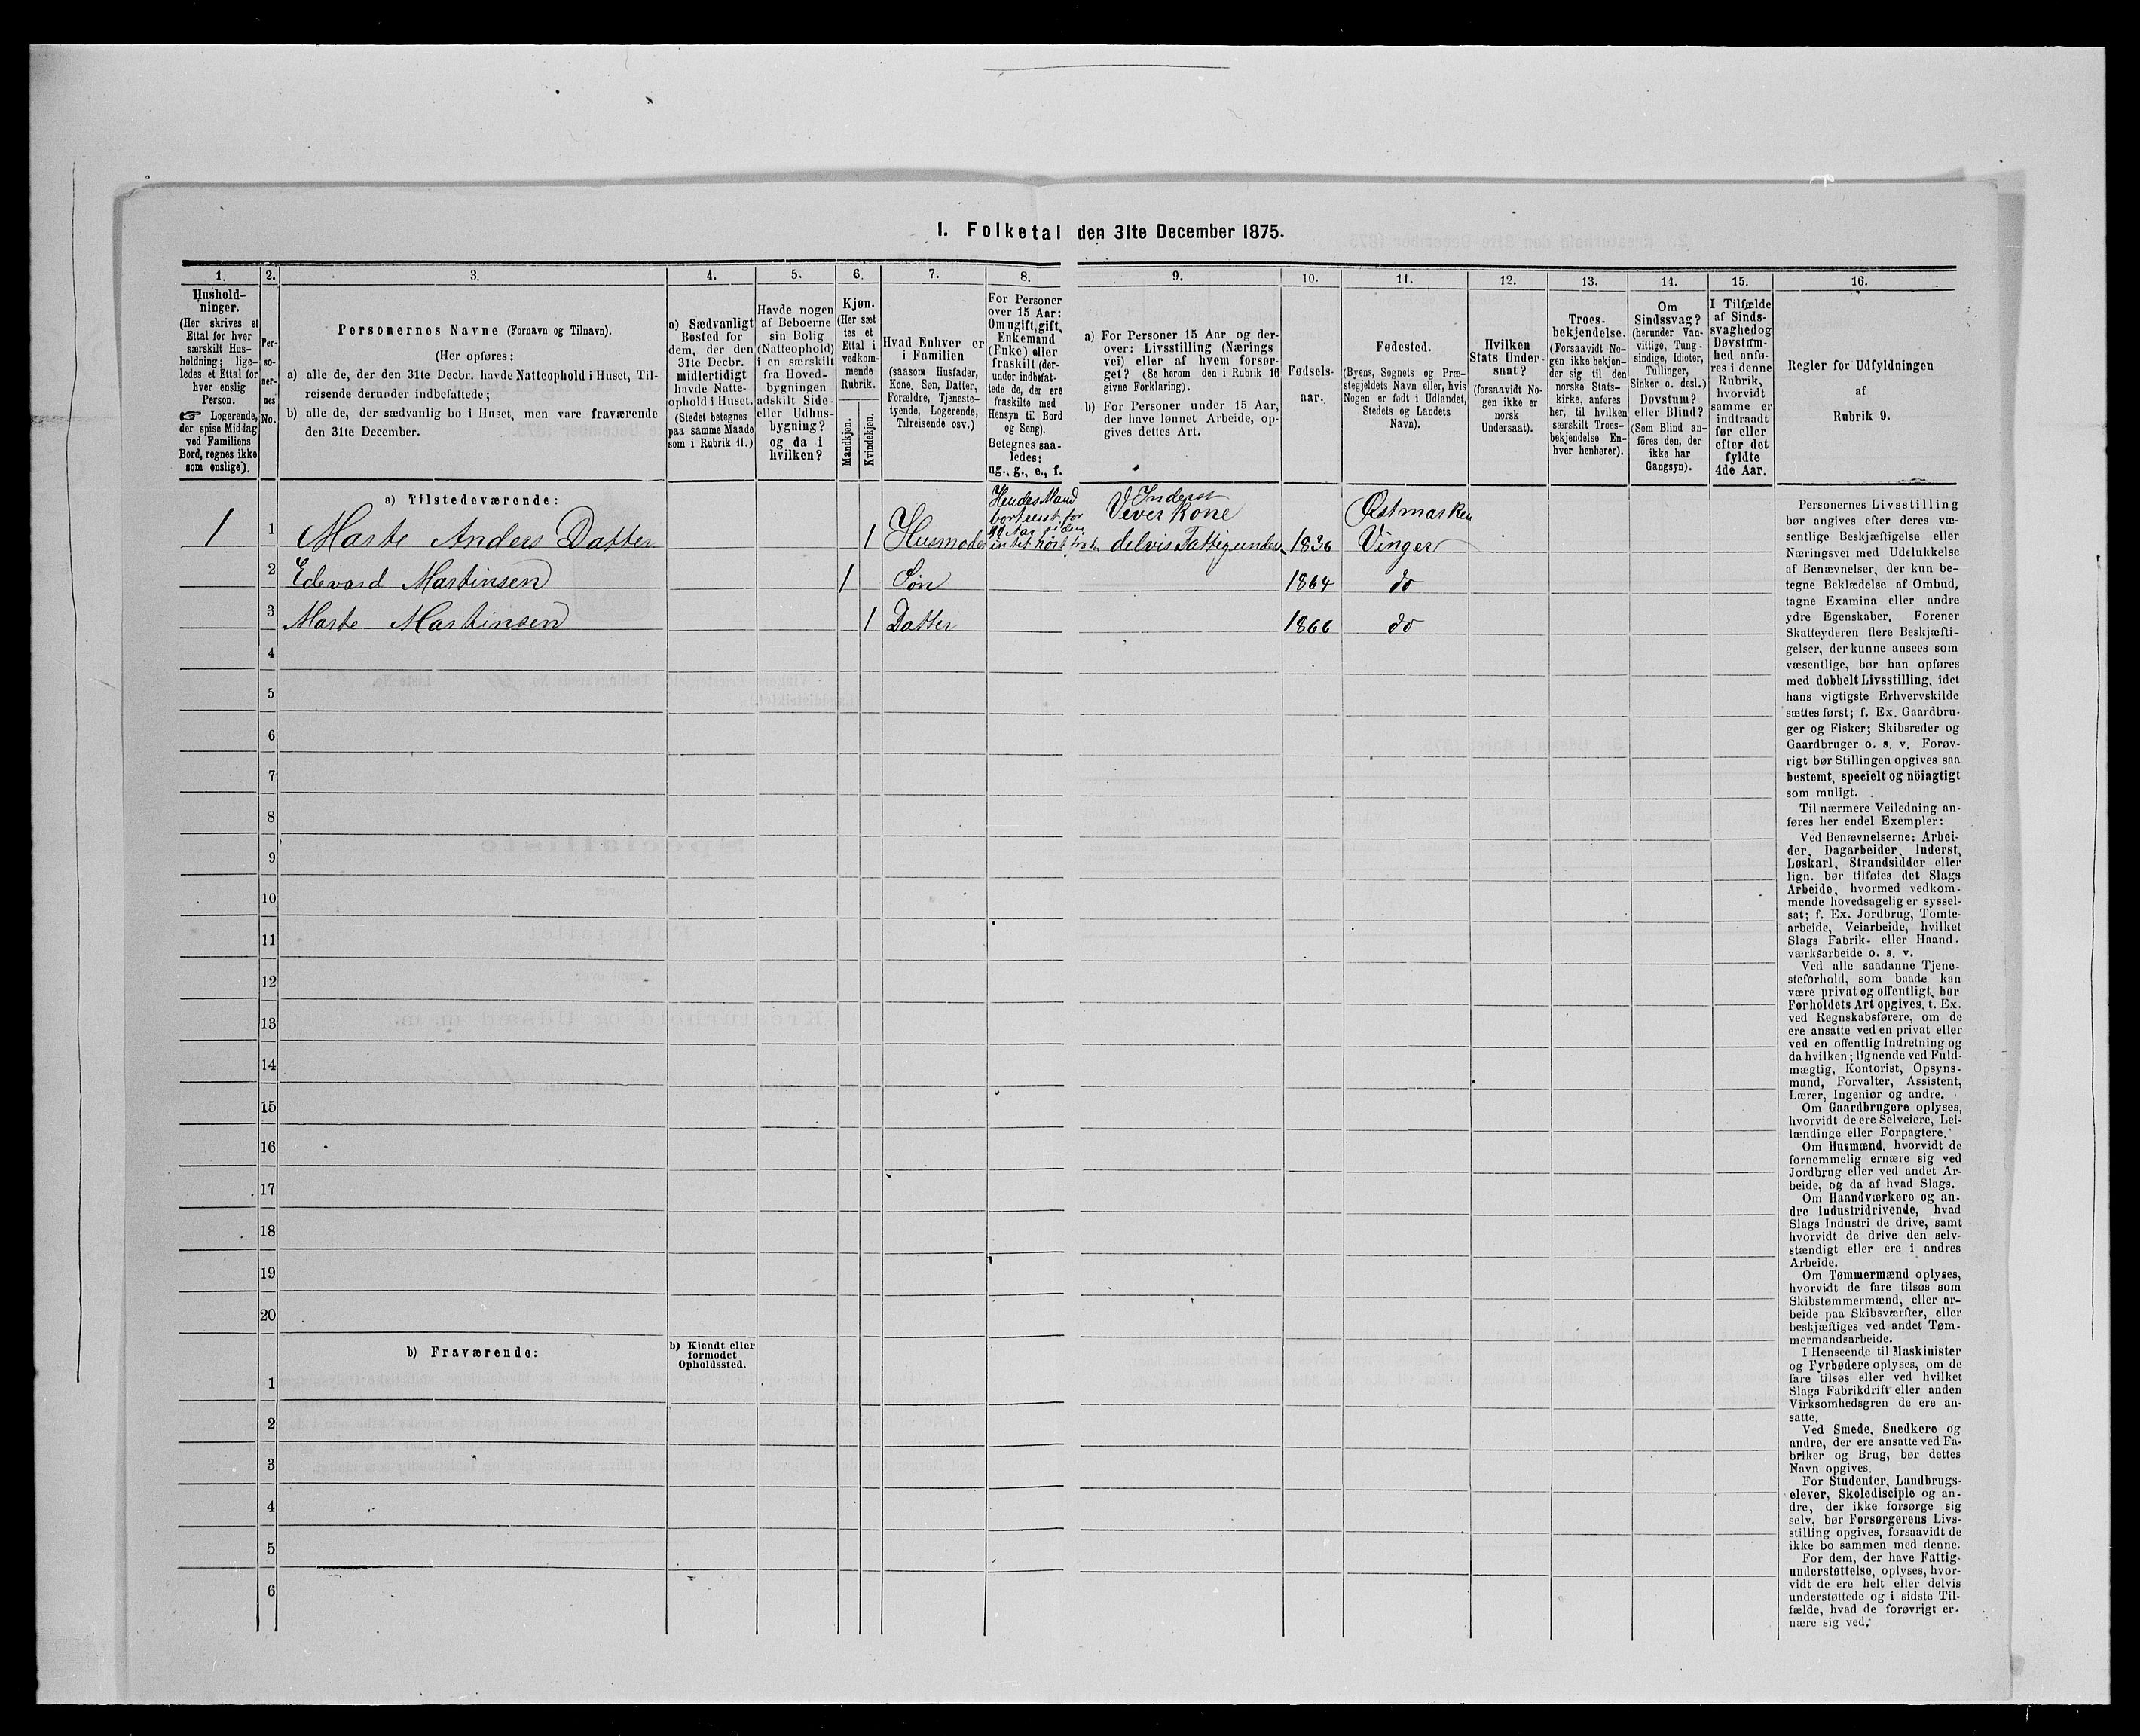 I. Folketal den 31te December 1875.
1. 2. 3. 4. 5. 6. 7. 8. 9. 10. 11. 12. 13. 14. 15. 16.
Hushold-
ninger.
(Her skrives et
Ettal for hver
særskilt Hus-
holdning; lige-
ledes et Ettal for
hver enslig
Person.
☞ Logerende,
der spise Middag
ved Familiens
Bord, regnes ikke
som enslige).
Per-
so-
ner-
nes
No.
Personernes Navne (Fornavn og Tilnavn).
(Her opføres:
a) alle de, der den 31te Decbr. havde Natteophold i Huset, Til-
reisende derunder indbefattede;
b) alle de, der sædvanlig bo i Huset, men vare fraværende
den 31te December.
a) Sædvanligt
Bosted for
dem, der den
31te Decbr.
midlertidigt
havde Natte-
ophold i Huset.
(Stedet betegnes
paa samme Maade
som i Rubrik 11.)
Havde nogen
af Beboerne
sin Bolig
(Natteophold)
i en særskilt
fra Hoved-
bygningen
adskilt Side-
eller Udhus-
bygning?
og da i
hvilken?
Kjøn.
(Her sæt
tes et
Ettal i
vedkom-
mende
Rubrik.
Mandkjøn.
Kvindekjøn.
Hvad Enhver er
i Familien
(saasom Husfader,
Kone, Søn, Datter,
Forældre, Tjeneste-
tyende, Logerende,
Tilreisende osv.)
For Personer
over 15 Aar:
Om ugift, gift,
Enkemand
(Enke) eller
fraskilt (der-
under indbefat-
tede de, der ere
fraskilte med
Hensyn til Bord
og Seng).
Betegnes saa-
ledes:
ug., g., e., f.
a) For Personer 15 Aar og der-
over: Livsstilling (Nærings
vei) eller af hvem forsør-
get? (Se herom den i Rubrik 16
givne Forklaring).
b) For Personer under 15 Aar,
der have lønnet Arbeide, op-
gives dettes Art.
Fødsels-
aar.
Fødested.
(Byens, Sognets og Præ-
stegjeldets Navn eller, hvis
Nogen er født i Udlandet,
Stedets og Landets
Navn).
Hvilken
Stats Under-
saat?
(forsaavidt No-
gen ikke er
norsk
Undersaat).
Troes-
bekjendelse.
(Forsaavidt No-
gen ikke bekjen-
der sig til den
norske Stats-
kirke, anføres
her, til hvilken
særskilt Troes-
bekjendelse En-
hver henhører).
Om
Sindssvag?
(herunder Van-
vittige, Tung-
sindige, Idioter,
Tullinger,
Sinker o. desl.)
Døvstum?
eller Blind?
(Som Blind an-
føres den, der
ikke har
Gangsyn).
I Tilfælde
af Sinds-
svaghed og
Døvstum-
hed anfø-
res i denne
Rubrik,
hvorvidt
samme er
indtraadt
før eller
efter det
fyldte
4de Aar.
Regler for Udfyldningen
af
Rubrik 9.
a) Tilstedeværende:
Hendes Mand
bortreist for
Aar siden
intet hørt fra
Inderst
Væver Kone
delvis Fattigunders
Østmarken
1 1 Marte Anders Datter 1 Husmoder 1836 Vinger
2 Edevard Martinsen 1 Søn 1864 do
3 Marte Martinsen 1 Datter 1866 do
4
5
6
7
8
9
10
11
12
13
14
15
16
17
18
19
20
b) Fraværende:
b) Kjendt eller
formodet
Opholdssted.
1
2
3
4
5
6
Personernes Livsstilling
bør angives efter deres væ-
sentlige Beskjæftigelse eller
Næringsvei med Udelukkelse
af Benævnelser, der kun be-
tegne Beklædelse af Ombud,
tagne Examina eller andre
ydre Egenskaber. Forener
Skatteyderen flere Beskjæfti-
gelser, der kunne ansees som
væsentlige, bør han opføres
med dobbelt Livsstilling, idet
hans vigtigste Erhvervskilde
sættes først; f. Ex. Gaardbru-
ger og Fisker; Skibsreder og
Gaardbruger o. s. v. Forøv-
rigt bør Stillingen opgives saa
bestemt, specielt og nöiagtigt
som muligt.
Til nærmere Veiledning an-
føres her endel Exempler:
Ved Benævnelserne: Arbei-
der, Dagarbeider, Inderst,
Løskarl, Strandsidder eller
lign. bør tilføies det Slags
Arbeide, hvormed vedkom-
mende hovedsagelig er syssel-
sat; f. Ex. Jordbrug, Tomte-
arbeide, Veiarbeide, hvilket
Slags Fabrik- eller Haand-
værksarbeide o. s. v.
Ved alle saadanne Tjene-
steforhold, som baade kan
være privat og offentligt, bør
Forholdets Art opgives, t. Ex.
ved Regnskabsførere, om de
ere ansatte ved en privat eller
ved en offentlig Indretning og
da hvilken; lignende ved Fuld-
mægtig, Kontorist, Opsyns-
mand, Forvalter, Assistent,
Lærer, Ingeniør og andre.
Om Gaardbrugere oplyses,
hvorvidt de ere Selveiere, Lei-
lændinge eller Forpagtere.
Om Husmænd, hvorvidt de
fornemmelig ernære sig ved
Jordbrug eller ved andet Ar-
beide, og da af hvad Slags.
Om Haandværkere og an-
dre Industridrivende, hvad
Slags Industri de drive, samt
hvorvidt de drive den selv-
stændigt eller ere i andres
Arbeide.
Om Tømmermænd oplyses,
hvorvidt de fare tilsøs som
Skibstømmermænd, eller ar-
beide paa Skibsværfter, eller
beskjæftiges ved andet Tøm-
mermandsarbeide.
I Henseende til Maskinister
og Fyrbødere oplyses, om de
fare tilsøs eller ved hvilket
Slags Fabrikdrift eller anden
Virksomhedsgren de ere an-
satte.
Ved Smede, Snedkere og
andre, der ere ansatte ved Fa-
briker og Brug, bør dettes
Navn opgives.
For Studenter, Landbrugs-
elever, Skoledisciple og an-
dre, der ikke forsørge sig
selv, bør Forsørgerens Livs-
stilling opgives, forsaavidt de
ikke bo sammen med denne.
For dem, der have Fattig-
understøttelse, oplyses, hvor-
vidt de ere helt eller delvis
understøttede og i sidste Til-
fælde, hvad de forøvrigt er-
nære sig ved.